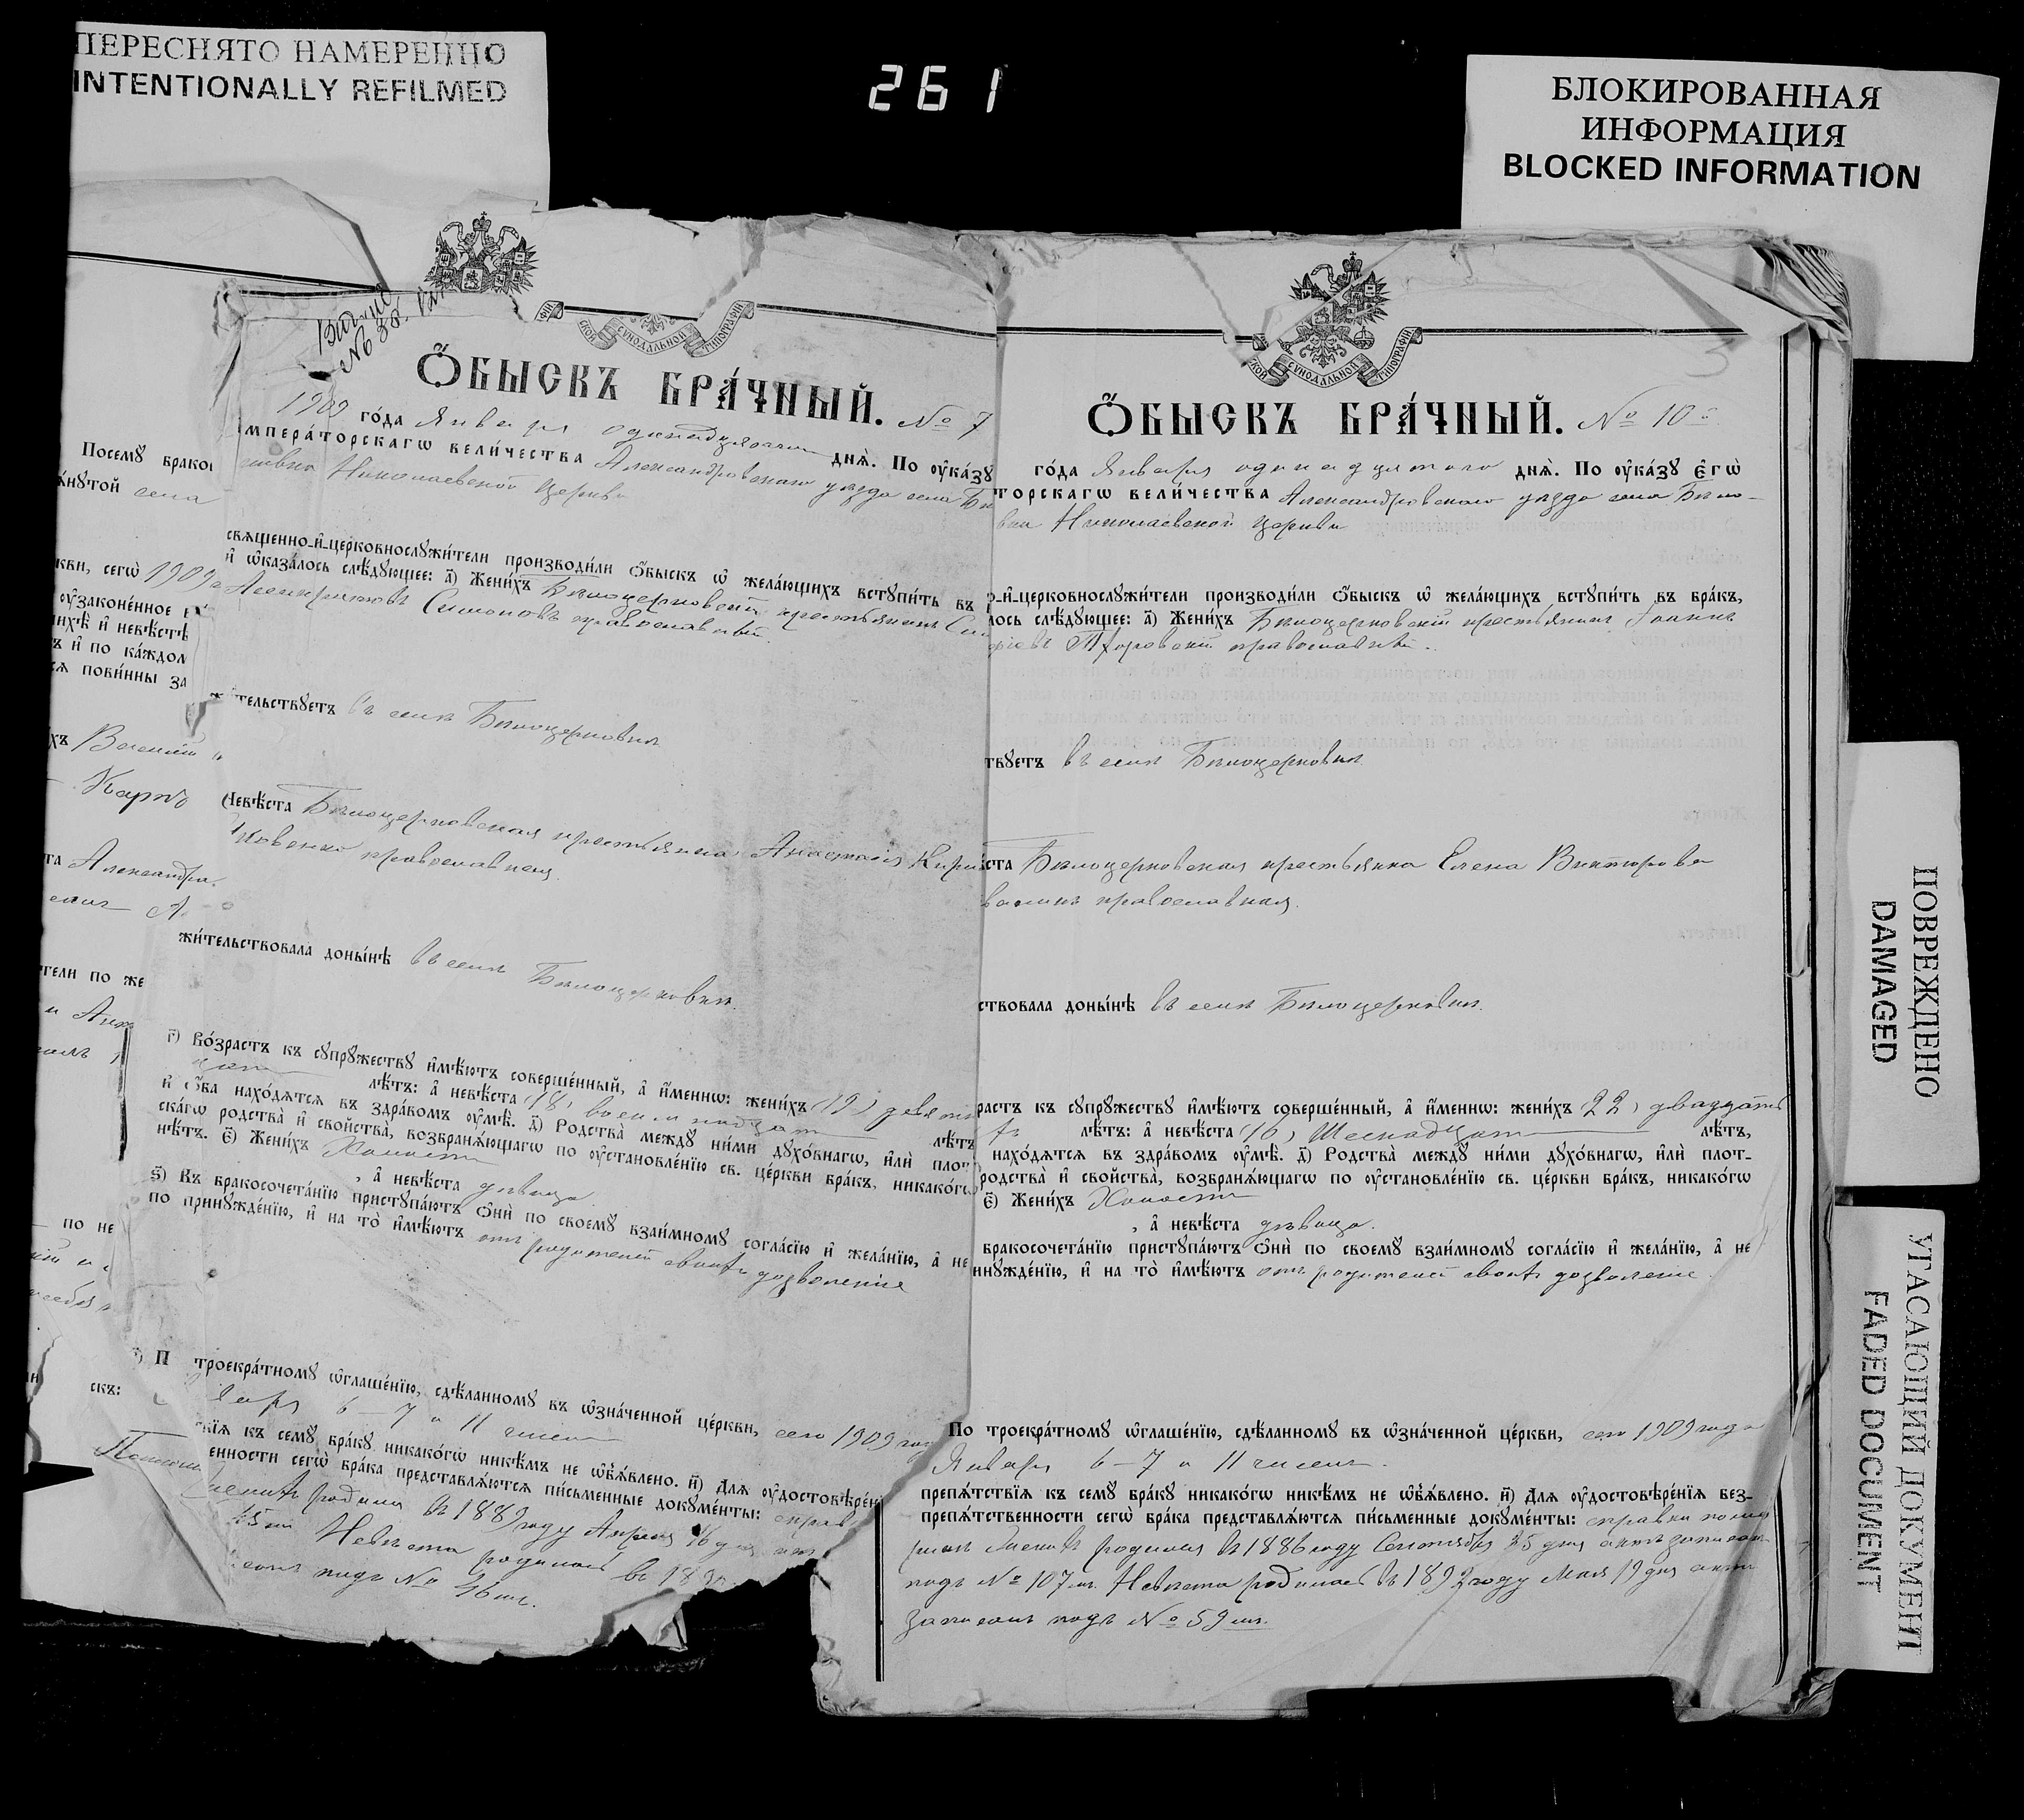 ПЕРЕСНЯТО НАМЕРЕННО
INTENTIONALLY REFILMED
261
БЛОКИРОВАННАЯ
ИНФОРМАЦИЯ
BLOCKED INFORMATION
Посемꙋ брако
ѧ́нꙋтой села
кви, сегѡ̀ 1909
ᲂу҆законе́нное
ихѣ̀ и҆ невѣ́стѣ
ъ и҆ по ка́ждом
сѧ пови́нны за
хъ Василій
Карп
та Александра
тели по же
по не
скъ:
№
СКОЙ СѴНОДАЛЬНОЙ ТИПОГРАФІИ
Ѻ҆́БЫСКЪ БРА́ЧНЫЙ. № 7
1909 го́да Января одинадцатого днѧ̀. По ᲂу҆ка́зꙋ
мпера́торскагѡ вели́чества Александровскаго уѣзда села Бѣ
Николаевской церкви
свѧще́нно-и҆-церковнослꙋжи́тели производи́ли ѻ҆́быскъ ѡ҆ жела́ющихъ встꙋпи́ть въ
и҆ ѡ҆каза́лось слѣ́дꙋющее: а҃) Жени́хъ Бѣлоцерковскій крестьянинъ
Симоновъ православный.
тельствꙋетъ въ селѣ Бѣлоцерковкѣ
Невѣ́ста Бѣлоцерковская крестьянка Анастасія
православная
жи́тельствовала доны́нѣ въ селѣ Бѣлоцерковкѣ.
г҃) Во́зрастъ къ сꙋпрꙋ́жествꙋ и҆мѣ́ютъ соверше́нный, а҆ и҆́меннѡ: жени́хъ (19) девятн
лѣ́тъ: а҆ невѣ́ста (18) восемнадцат лѣ́тъ
и҆ ѻ҆́ба нахо́дѧтсѧ въ здра́вомъ ᲂу҆мѣ̀. д҃) Родства̀ междꙋ ни́ми дꙋхо́внагѡ, и҆лѝ плот
ска́гѡ родства̀ и҆ сво́йства, возбранѧ́ющагѡ по ᲂу҆становле́нїю св. це́ркви бра́къ, никако́гѡ
нѣ́тъ. є҃) Жени́хъ Холостъ
, а҆ невѣ́ста дѣвица
ѕ҃) Въ бракосочета́нїю пристꙋпа́ютъ ѻ҆нѝ по своемꙋ̀ взаи́мномꙋ согла́сїю и҆ жела́нїю, а҆ не
по принꙋжде́нїю, и҆ на то̀ и҆мѣ́ютъ отъ родителей своихъ дозволеніе
П троекра́тномꙋ ѡ҆глаше́нїю, сдѣ́ланномꙋ въ ѡ҆зна́ченной це́ркви, сего 1909 год
6 – 7 и 11 чиселъ
кїѧ къ семꙋ̀ бра́кꙋ никако́гѡ никѣ́мъ не ѡ҆б̾ѧ́влено. и҃) Для ᲂу҆достовѣре́н
енности сегѡ̀ бра́ка представлѧ́ютсѧ пи́сьменные докꙋме́нты: справ
родился въ 1889 году Апрѣля 16 дня
Невѣста родилась въ 18
подъ № 46 мъ.
СКОЙ СѴНОДАЛЬНОЙ ТИПОГРАФІИ
Ѻ҆́БЫСКЪ БРА́ЧНЫЙ. № 10
го́да Января одинадцатого днѧ̀. По ᲂу҆ка́зꙋ є҆гѡ̀
торскагѡ вели́чества Александровскаго уѣзда села Бѣло-
вки Николаевской церкви
о-и҆-церковнослꙋжи́тели производи́ли ѻ҆́быскъ ѡ҆ жела́ющихъ встꙋпи́ть въ бра́къ,
лось слѣ́дꙋющее: а҃) Жени́хъ Бѣлоцерковскій крестьянинъ Іоаннъ
православный.
твꙋетъ въ селѣ Бѣлоцерковкѣ.
ста Бѣлоцерковская крестьянка Елена Викторова
православная.
ствовала доны́нѣ въ селѣ Бѣлоцерковкѣ.
растъ къ сꙋпрꙋ́жествꙋ и҆мѣ́ютъ соверше́нный, а҆ и҆́меннѡ: жени́хъ (22) двадцать
лѣ́тъ: а҆ невѣ́ста (16) Шеснадцат лѣ́тъ,
нахо́дѧтсѧ въ здра́вомъ ᲂу҆мѣ̀. д҃) Родства̀ междꙋ ни́ми дꙋхо́внагѡ, и҆лѝ плот-
родства̀ и҆ сво́йства, возбранѧ́ющагѡ по ᲂу҆становле́нїю св. це́ркви бра́къ, никако́гѡ
є҃) Жени́хъ Холостъ
, а҆ невѣ́ста дѣвица.
бракосочета́нїю пристꙋпа́ютъ ѻ҆нѝ по своемꙋ̀ взаи́мномꙋ согла́сїю и҆ жела́нїю, а҆ не
инꙋжде́нїю, и҆ на то̀ и҆мѣ́ютъ отъ родителей своихъ дозволеніе.
По троекра́тномꙋ ѡ҆глаше́нїю, сдѣ́ланномꙋ въ ѡ҆зна́ченной це́ркви, сего 1909 года
Января 6 – 7 и 11 чиселъ.
препѧ́тствїѧ къ семꙋ̀ бра́кꙋ никако́гѡ никѣ́мъ не ѡ҆б̾ѧ́влено. и҃) Для ᲂу҆достовѣре́нїѧ без-
препѧ́тственности сегѡ̀ бра́ка представлѧ́ютсѧ пи́сьменные докꙋме́нты: справки по мет
рикѣ Женихъ родился въ 1886 году Сентября 25 дня актъ записанъ
подъ № 107 мъ. Невѣста родилась въ 1892 году Мая 19 дня актъ
записанъ подъ № 59 мъ.
ПОВРЕЖДЕНО
DAMAGED
УГАСАЮЩИЙ ДОКУМЕНТ
FADED DOCUMENT